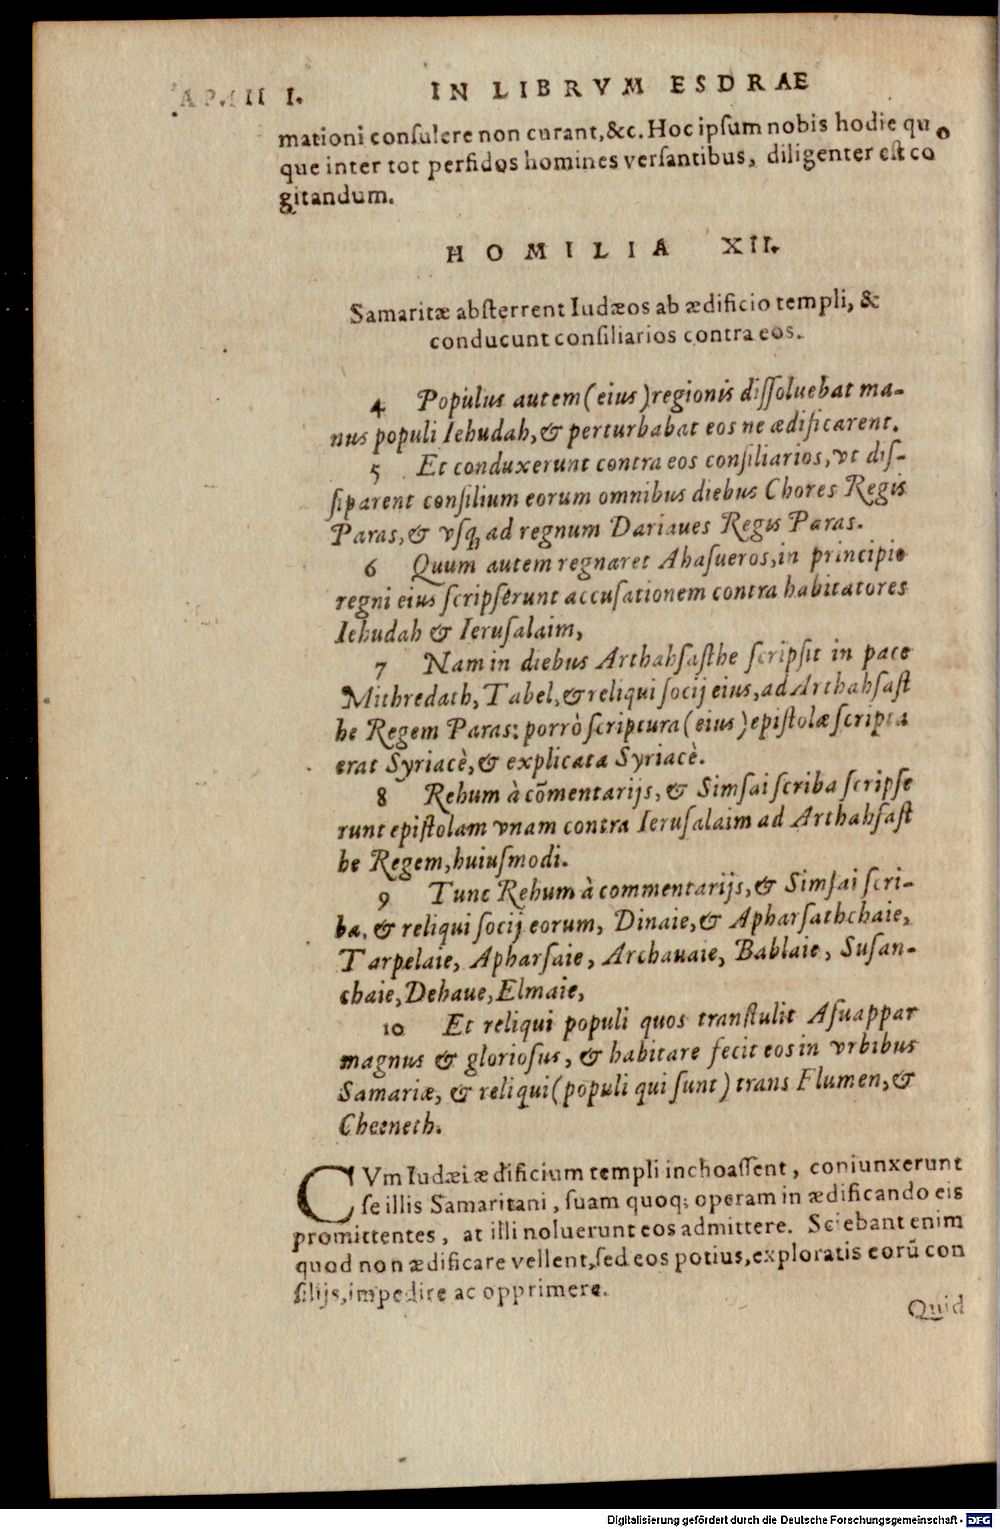 I. IN LIBRVM ESDRAE
mationi conſulere non curant, &c. Hoc ipſum nobis hodie quo
que inter tot perfidos homines verſantibus, diligenter eſt co
gitandum.
HOMILIA XII.
Samaritæ abſterrent Iudæos ab ædificio templi, &
conducunt conſiliarios contra eos.
4 Populus autem (eius) regionis diſſoluebat ma-
nus populi Iehudah, & perturbabat eos ne ædificarent.
5 Et conduxerunt contra eos conſiliarios, vt diſ-
ſiparent conſilium eorum omnibus diebus Chores Regis
Paras, & vſq; ad regnum Dariaues Regis Paras.
6 Quum autem regnaret Ahaſueros, in principio
regni eius ſcripſerunt accuſationem contra habitatores
Iehudah & Ieruſalaim,
7 Nam in diebus Arthahſaſthe ſcripſit in pace
Mithredath, Tabel, & reliqui ſocij eius, ad Arthahſaſt
he Regem Paras: porrò ſcriptura (eius) epiſtolæ ſcripta
erat Syriacè, & explicata Syriacè.
8 Rehum à cõmentarijs, & Simſai ſcriba ſcripſe
runt epiſtolam vnam contra Ieruſalaim ad Arthahſaſt
he Regem, huiuſmodi.
9 Tunc Rehum à commentarijs, & Simſai ſcri-
ba, & reliqui ſocij eorum, Dinaie, & Apharſathchaie,
Tarpelaie, Apharſaie, Archauaie, Bablaie, Suſan-
chaie, Dehaue, Elmaie,
10 Et reliqui populi quos tranſtulit Aſuappar
magnus & glorioſus, & habitare fecit eos in vrbibus
Samariæ, & reliqui (populi qui ſunt) trans Flumen, &
Cheeneth.
CVm Iudæi ædificium templi inchoaſſent, coniunxerunt
ſe illis Samaritani, ſuam quoq; operam in ædificando eis
promittentes, at illi noluerunt eos admittere. Sciebant enim
quod non ædificare vellent, ſed eos potius, exploratis eorũ con
ſilijs, impedire ac opprimere.
Quid
Digitalisierung gefördert durch die Deutsche Forschungsgemeinschaft - DFG